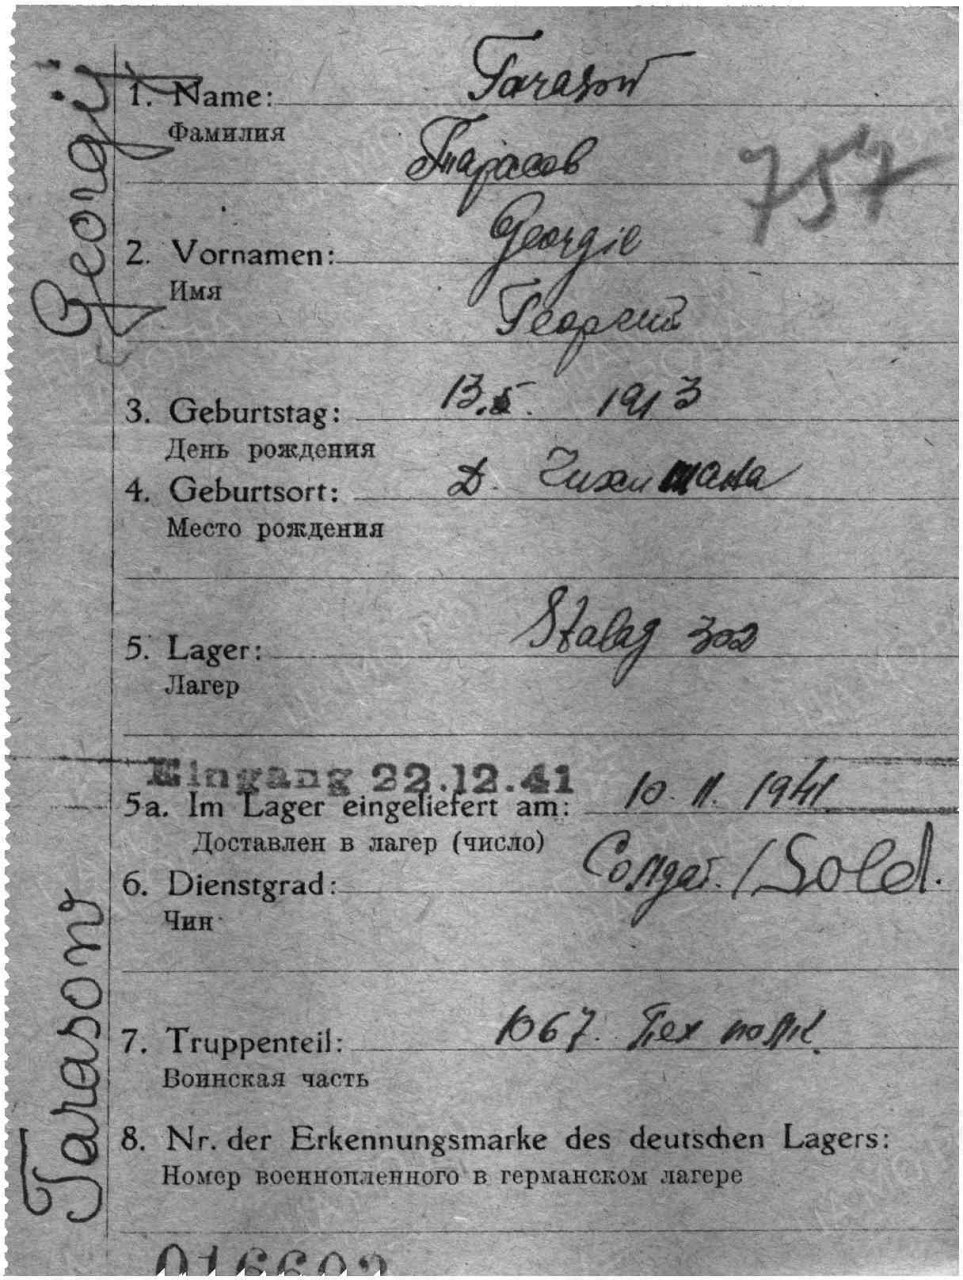 Georgij
1. Name: Tarasow
Фамилия
Тарасов
757
2. Vornamen: Georgie
Имя
Георгий
3. Geburtstag: 13.5. 1913
День рождения
4. Geburtsort: Д.
Место рождения
5. Lager: Stalag 302
Лагер
Eingang 22.12.41
5a. Im Lager eingeliefert am: 10. 11. 1941
Доставлен в лагер (число)
6. Dienstgrad: Солдат. / Sold.
Чин
7. Truppenteil: 1067.
Воинская часть
8. Nr. der Erkennungsmarke des deutschen Lagers:
Номер военнопленного в германском лагере
Tarasow